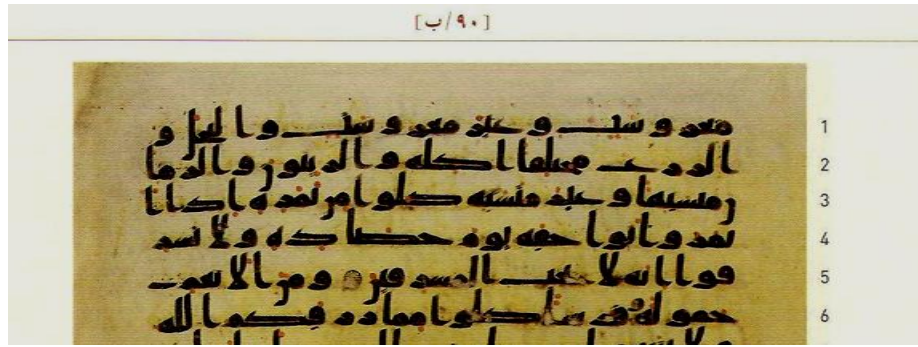 [٩٠/ب]
معروشت وغير معروشت والنخل و 1
الزرع مختلفا اكله والزيتون والرما 2
ن متشبها وغير متشبه كلوا من ثمره اذا ا 3
ثمر واتوا حقه يوم حصاده ولا تسر 4
فوا انه لا يحب المسرفين ومن الانعم 5
حمولة وفرشا كلوا مما رزقكم الله 6